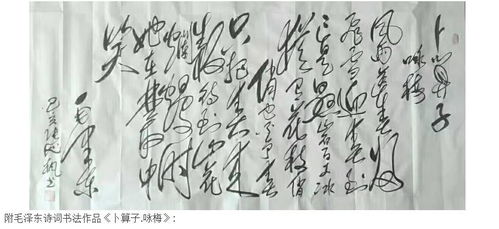 卜算子
咏梅
风雨送春归
飞雪迎春到
已是悬崖百丈冰
犹有花枝俏
俏也不争春
只把春来
报待到山花
烂漫时
她在丛中
笑
毛泽东
书
附毛泽东诗词书法作品《卜算子.咏梅》：